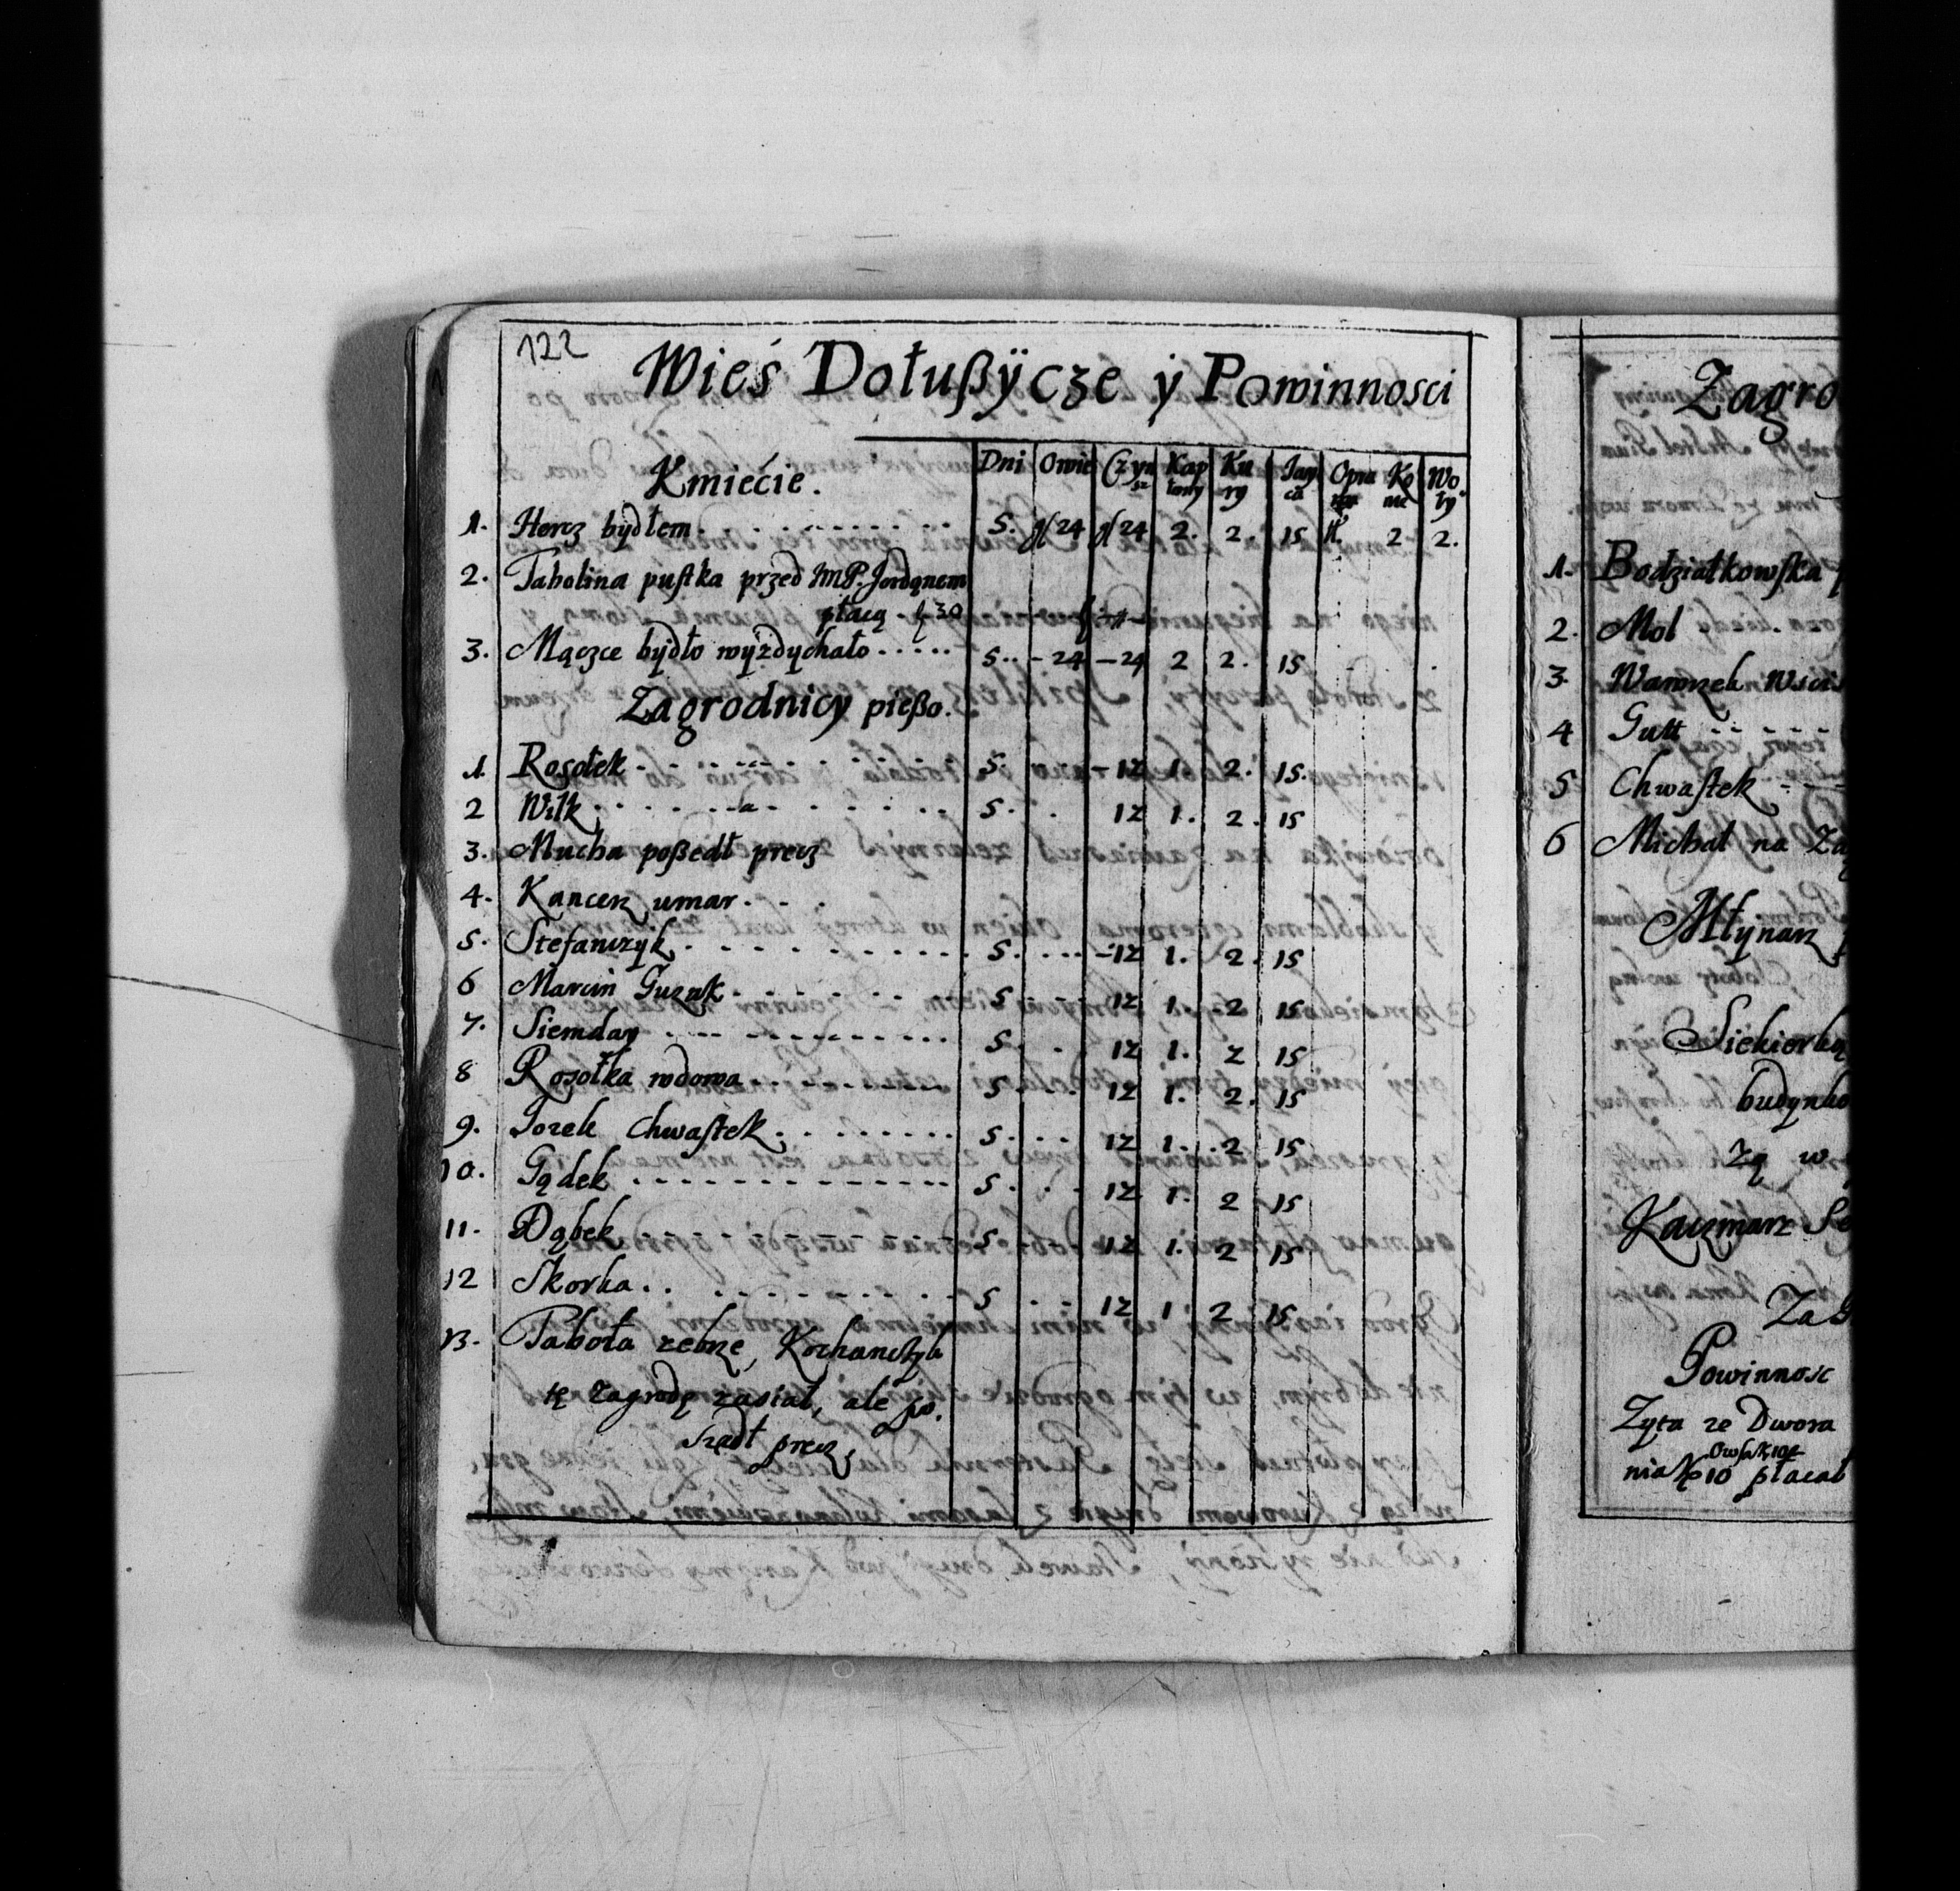 122
Wieś Dołußÿcze ÿ Powinnosci
Kmiećie. Dni Owie Czyn sz Kap łony Ku ry Jay ca Opra Ko nie Wo ły
1. Hercz bydłem. 5. 24 24 2. 2. 15 2 2.
2. Tabolina pustka przed IMP. Jordanem
płacą 30
3. Mączce bydło wyżdychało 5. 24 24 2 2. 15
Zagrodnicy pießo.
1. Rosołek 5. 12 1. 2. 15.
2 Wilk 5. 12 1. 2. 15
3. Mucha poßedł precz
4. Kancerz umar
5. Stefanczyk 5. 12 1. 2. 15
6 Marcin Guzak 5 12 1. 2 15
7. Siemday 5. 12 1. 2 15
8 Rosołka wdowa 5 12 1. 2. 15
9. Jozek Chwastek 5. 12 1. 2 15
10. Gądek 5. 12 1. 2 15
11. Dąbek 5 12 1. 2 15
12 Skorka 5 12 1 2 15
13. Taboła zebrze, Kochanczyk
tę Zagrodę zasiał, ale po.
szadł precz
Zagro
1. Bodziatkowska
2. Mol
3. Wawrzek Wscis
4 Gutt
5 Chwastek
6 Michał na Za
Młynarz
Siekierką
budynko
zą w
Kaczmarz
Zab
Powinnosc
Zyta ze Dwora
nia 10 płacał